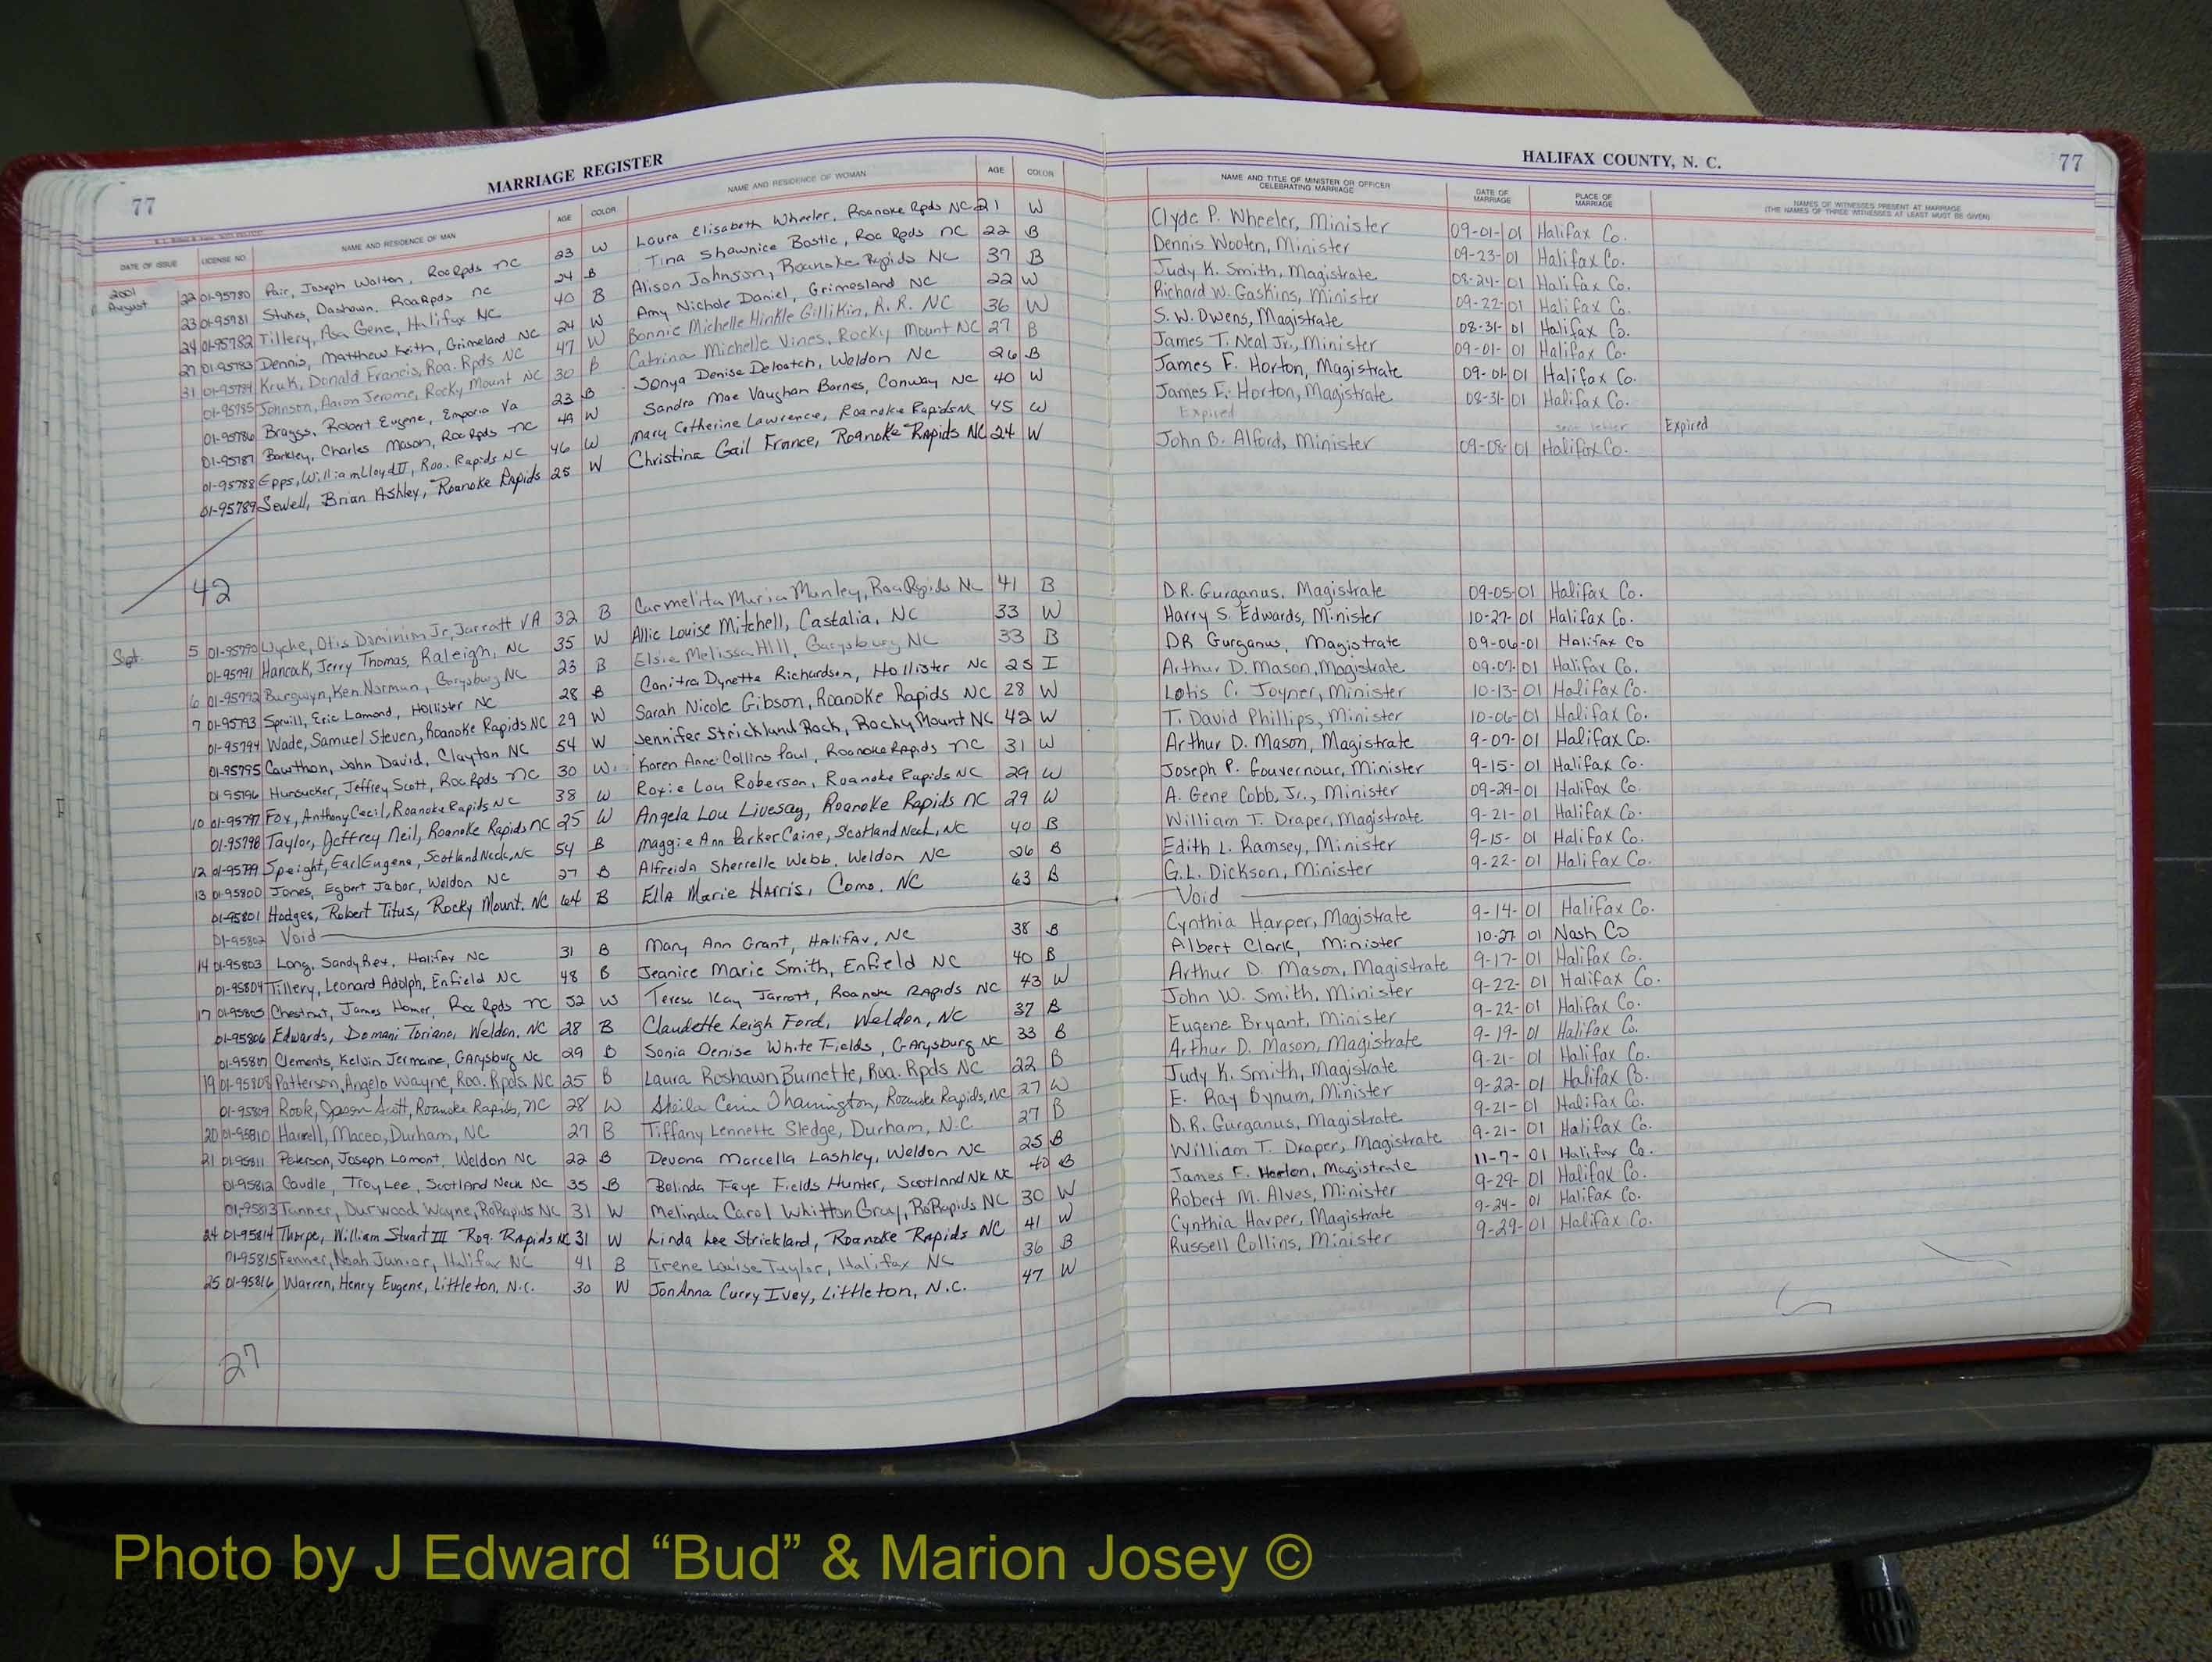 77 MARRIAGE REGISTER
HALIFAX COUNTY, N. C. 77
DATE OF ISSUE LICENSE NO. NAME AND RESIDENCE OF MAN AGE COLOR NAME AND RESIDENCE OF WOMAN AGE COLOR NAME AND TITLE OF MINISTER OR OFFICER CELEBRATING MARRIAGE DATE OF MARRIAGE PLACE OF MARRIAGE NAMES OF WITNESSES PRESENT AT MARRIAGE (THE NAMES OF THREE WITNESSES AT LEAST MUST BE GIVEN)
2001
August 22 01-95780 Pair, Joseph Walton, Roa Rpds NC 23 W Laura Elisabeth Wheeler, Roanoke Rpds NC 21 W Clyde P. Wheeler, Minister 09-01-01 Halifax Co.
23 01-95781 Stukes, Dashawn, Roa Rpds NC 24 B Tina Shawnice Bostic, Roa Rpds NC 22 B Dennis Wooten, Minister 09-23-01 Halifax Co.
24 01-95782 Tillery, Asa Gene, Halifax NC 40 B Alison Johnson, Roanoke Rapids NC 37 B Judy K. Smith, Magistrate 08-24-01 Halifax Co.
27 01-95783 Dennis, Matthew Keith, Grimeland NC 24 W Amy Nichole Daniel, Grimesland NC 22 W Richard W. Gaskins, Minister 09-22-01 Halifax Co.
31 01-95784 Kruk, Donald Francis, Roa. Rpds NC 47 W Bonnie Michelle Hinkle Gillikin, R.R. NC 36 W S.W. Owens, Magistrate 08-31-01 Halifax Co.
01-95785 Johnson, Aaron Jerome, Rocky Mount NC 30 B Catrina Michelle Vines, Rocky Mount NC 27 B James T. Neal Jr., Minister 09-01-01 Halifax Co.
01-95786 Braggs, Robert Eugene, Emporia Va 23 B Sonya Denise Deloatch, Weldon NC 26 B James F. Horton, Magistrate 09-01-01 Halifax Co.
01-95787 Barkley, Charles Mason, Roa Rpds NC 49 W Sandra Mae Vaughan Barnes, Conway NC 40 W James F. Horton, Magistrate 08-31-01 Halifax Co.
01-95788 Epps, William Lloyd II, Roa. Rapids NC 46 W Mary Catherine Lawrence, Roanoke Rapids NC 45 W Expired sent letter Expired
01-95789 Sewell, Brian Ashley, Roanoke Rapids 25 W Christina Gail France, Roanoke Rapids NC 24 W John B. Alford, Minister 09-08-01 Halifax Co.
42
Sept. 5 01-95790 Wyche, Otis Dominim Jr, Jarratt VA 32 B Carmelita Maria Manley, Roa Rapids NC 41 B D.R. Gurganus, Magistrate 09-05-01 Halifax Co.
01-95791 Hancock, Jerry Thomas, Raleigh, NC 35 W Allie Louise Mitchell, Castalia, NC 33 W Harry S. Edwards, Minister 10-27-01 Halifax Co.
6 01-95792 Burgwyn, Ken Norman, Garysburg NC 23 B Elsie Melissa Hill, Garysburg NC 33 B DR Gurganus, Magistrate 09-06-01 Halifax Co
7 01-95793 Spruill, Eric Lamond, Hollister NC 28 B Conitra Dynette Richardson, Hollister NC 25 I Arthur D. Mason, Magistrate 09-07-01 Halifax Co.
01-95794 Wade, Samuel Steven, Roanoke Rapids NC 29 W Sarah Nicole Gibson, Roanoke Rapids NC 28 W Lotis C. Joyner, Minister 10-13-01 Halifax Co.
01-95795 Cawthon, John David, Clayton NC 54 W Jennifer Strickland Rock, Rocky Mount NC 42 W T. David Phillips, Minister 10-06-01 Halifax Co.
01-95796 Hunsucker, Jeffrey Scott, Roa Rpds NC 30 W Karen Anne Collins Paul, Roanoke Rapids NC 31 W Arthur D. Mason, Magistrate 9-07-01 Halifax Co.
10 01-95797 Fox, Anthony Cecil, Roanoke Rapids NC 38 W Roxie Lou Roberson, Roanoke Rapids NC 29 W Joseph P. Gouvernour, Minister 9-15-01 Halifax Co.
01-95798 Taylor, Jeffrey Neil, Roanoke Rapids NC 25 W Angela Lou Livesay, Roanoke Rapids NC 29 W A. Gene Cobb, Jr., Minister 09-29-01 Halifax Co.
12 01-95799 Speight, Earl Eugene, Scotland Neck, NC 54 B Maggie Ann Parker Caine, Scotland Neck, NC 40 B William T. Draper, Magistrate 9-21-01 Halifax Co.
13 01-95800 Jones, Egbert Jabor, Weldon NC 27 B Alfreida Sherrelle Webb, Weldon NC 26 B Edith L. Ramsey, Minister 9-15-01 Halifax Co.
01-95801 Hodges, Robert Titus, Rocky Mount, NC 64 B Ella Marie Harris, Como, NC 63 B G.L. Dickson, Minister 9-22-01 Halifax Co.
01-95802 Void Void
14 01-95803 Long, Sandy Rex, Halifax NC 31 B Mary Ann Grant, Halifax, NC 38 B Cynthia Harper, Magistrate 9-14-01 Halifax Co.
01-95804 Tillery, Leonard Adolph, Enfield NC 48 B Jeanice Marie Smith, Enfield NC 40 B Albert Clark, Minister 10-27 01 Nash Co
17 01-95805 Chestnut, James Homer, Roa Rpds NC 52 W Teresa Kay Jarratt, Roanoke Rapids NC 43 W Arthur D. Mason, Magistrate 9-17-01 Halifax Co.
01-95806 Edwards, Domani Toriano, Weldon, NC 28 B Claudette Leigh Ford, Weldon, NC 37 B John W. Smith, Minister 9-22-01 Halifax Co.
01-95807 Clements, Kelvin Jermaine, Garysburg NC 29 B Sonia Denise White Fields, Garysburg NC 33 B Eugene Bryant, Minister 9-22-01 Halifax Co.
19 01-95808 Patterson, Angelo Wayne, Roa. Rpds. NC 25 B Laura Roshawn Burnette, Roa. Rpds NC 22 B Arthur D. Mason, Magistrate 9-19-01 Halifax Co.
01-95809 Rook, Jason Scott, Roanoke Rapids, NC 28 W Sheila Tharrington, Roanoke Rapids, NC 27 W Judy K. Smith, Magistrate 9-21-01 Halifax Co.
20 01-95810 Harrell, Maceo, Durham, NC 27 B Tiffany Lennette Sledge, Durham, N.C 27 B E. Ray Bynum, Minister 9-22-01 Halifax Co.
21 01-95811 Peterson, Joseph Lamont, Weldon NC 22 B Devona Marcella Lashley, Weldon NC 25 B D.R. Gurganus, Magistrate 9-21-01 Halifax Co.
01-95812 Caudle, Troy Lee, Scotland Neck NC 35 B Belinda Faye Fields Hunter, Scotland Nk NC 40 B William T. Draper, Magistrate 9-21-01 Halifax Co.
01-95813 Tanner, Durwood Wayne, Ro Rapids NC 31 W Melinda Carol Whitton Gray, Ro Rapids NC 30 W James F. Horton, Magistrate 11-7-01 Halifax Co.
24 01-95814 Thorpe, William Stuart III Roa. Rapids NC 31 W Linda Lee Strickland, Roanoke Rapids NC 41 W Robert M. Alves, Minister 9-29-01 Halifax Co.
01-95815 Fenner, Noah Junior, Halifax NC 41 B Irene Louise Taylor, Halifax NC 36 B Cynthia Harper, Magistrate 9-24-01 Halifax Co.
25 01-95816 Warren, Henry Eugene, Littleton, N.C. 30 W JonAnna Curry Ivey, Littleton, N.C. 47 W Russell Collins, Minister 9-29-01 Halifax Co.
27
Photo by J Edward “Bud” & Marion Josey ©